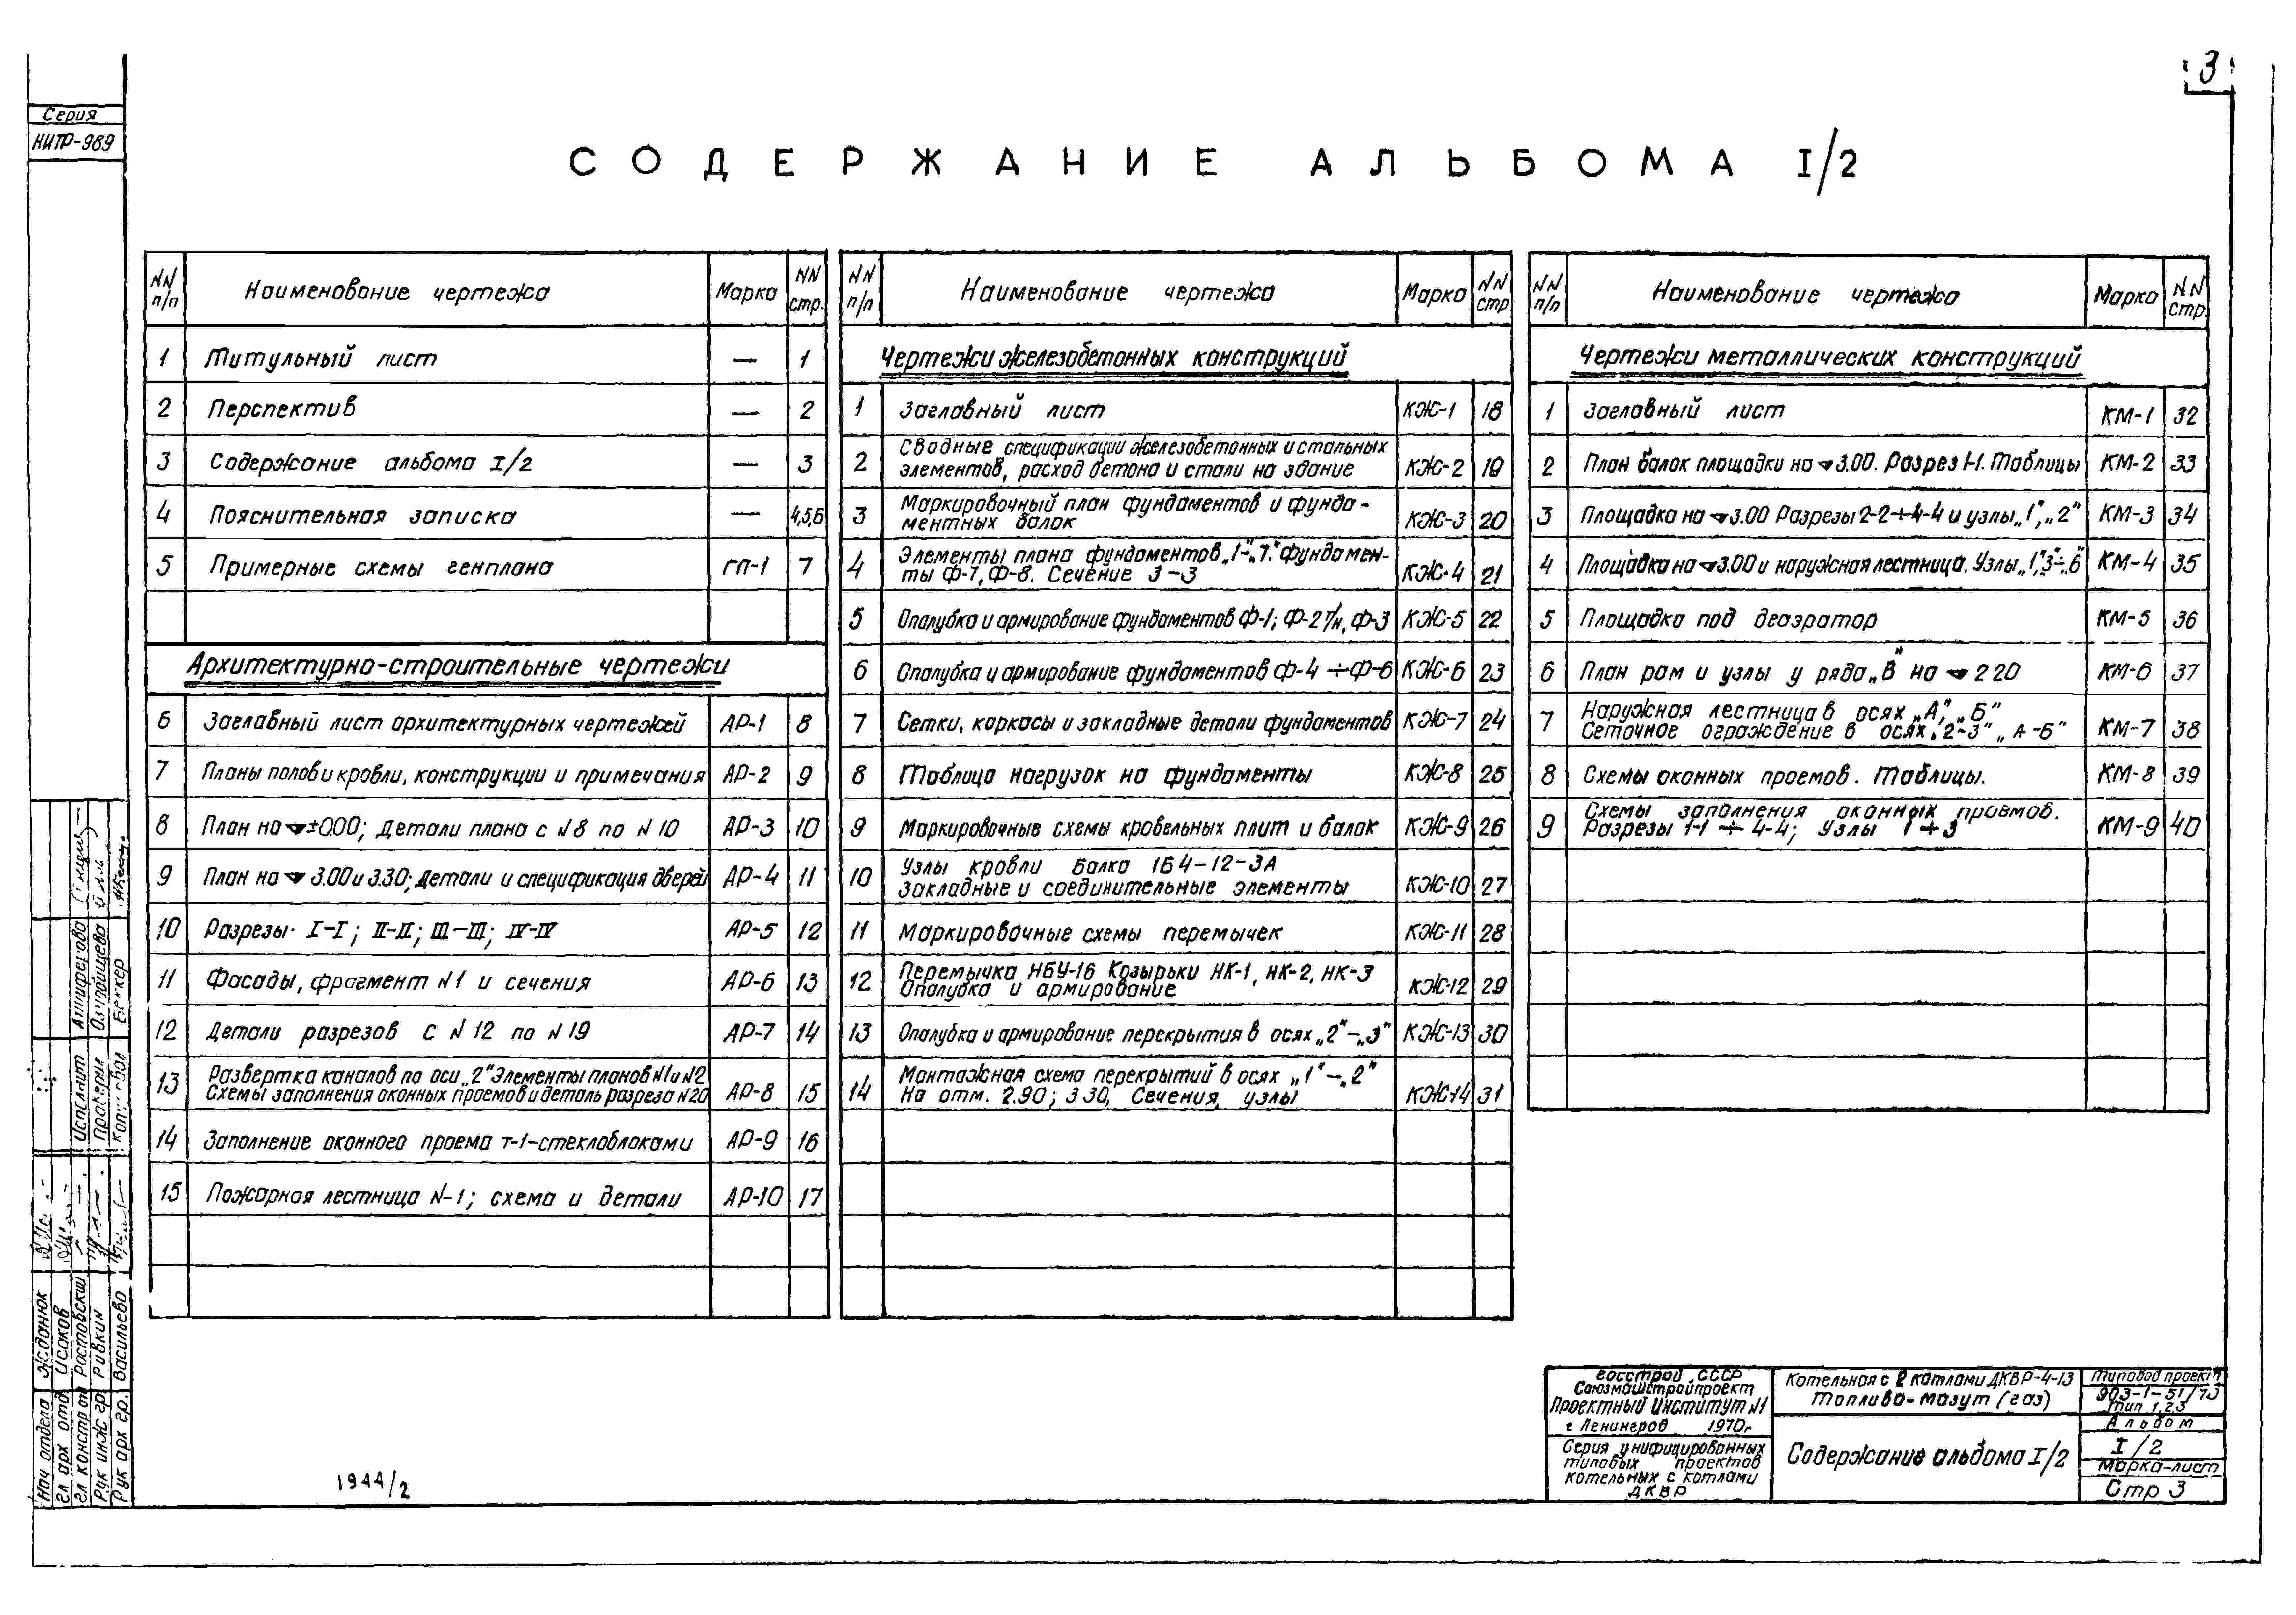 3
Серия
НИТР-989
СОДЕРЖАНИЕ АЛЬБОМА I/2
NN п/п Наименование чертежа Марка NN стр.
1 Титульный лист — 1
2 Перспектив — 2
3 Содержание альбома I/2 — 3
4 Пояснительная записка — 4,5,6
5 Примерные схемы генплана ГП-1 7
Архитектурно-строительные чертежи
6 Заглавный лист архитектурных чертежей АР-1 8
7 Планы полов и кровли, конструкции и примечания АР-2 9
8 План на ±0.00; детали плана с N8 по N10 АР-3 10
9 План на 3.00 и 3.30; детали и спецификация дверей АР-4 11
10 Разрезы. I-I; II-II; III-III; IV-IV АР-5 12
11 Фасады, фрагмент N1 и сечения АР-6 13
12 Детали разрезов с N12 по N19 АР-7 14
13 Развертка каналов по оси „2" Элементы планов N1 и N2
Схемы заполнения оконных проемов и деталь разреза N20 АР-8 15
14 Заполнение оконного проема т-1-стеклоблоками АР-9 16
15 Пожарная лестница N-1; схема и детали АР-10 17
NN п/п Наименование чертежа Марка NN стр
Чертежи железобетонных конструкций
1 Заглавный лист КЖ-1 18
2 Сводные спецификации железобетонных и стальных
элементов, расход бетона и стали на здание КЖ-2 19
3 Маркировочный план фундаментов и фунда-
ментных балок КЖ-3 20
4 Элементы плана фундаментов „1"-„7". Фундамен-
ты Ф-7, Ф-8. Сечение 3-3 КЖ-4 21
5 Опалубка и армирование фундаментов Ф-1; Ф-2 т/н, Ф-3 КЖ-5 22
6 Опалубка и армирование фундаментов Ф-4 ÷ Ф-6 КЖ-6 23
7 Сетки, каркасы и закладные детали фундаментов КЖ-7 24
8 Таблица нагрузок на фундаменты КЖ-8 25
9 Маркировочные схемы кровельных плит и балок КЖ-9 26
10 Узлы кровли Балка 1Б4-12-3А
Закладные и соединительные элементы КЖ-10 27
11 Маркировочные схемы перемычек КЖ-11 28
12 Перемычка НБУ-16 Козырьки НК-1, НК-2, НК-3
Опалубка и армирование КЖ-12 29
13 Опалубка и армирование перекрытия в осях „2"-„3" КЖ-13 30
14 Монтажная схема перекрытий в осях „1"-„2"
На отм. 2.90; 3 30, Сечения, узлы КЖ-14 31
NN п/п Наименование чертежа Марка NN стр.
Чертежи металлических конструкций
1 Заглавный лист КМ-1 32
2 План балок площадки на 3.00. Разрез 1-1. Таблицы КМ-2 33
3 Площадка на 3.00 Разрезы 2-2÷4-4 и узлы „1", „2" КМ-3 34
4 Площадка на 3.00 и наружная лестница. Узлы „1", „3"÷„6" КМ-4 35
5 Площадка под деаэратор КМ-5 36
6 План рам и узлы у ряда „В" на 2 20 КМ-6 37
7 Наружная лестница в осях „А", „Б"
Сеточное ограждение в осях „2-3" „А-Б" КМ-7 38
8 Схемы оконных проемов. Таблицы. КМ-8 39
9 Схемы заполнения оконных проемов.
Разрезы 1-1 ÷ 4-4; Узлы 1 ÷ 3 КМ-9 40
Исполнит
Проверил
Анциферова
Беккер
Нач отдела Жданюк
Гл арх отд Исаков
Гл констр от Ростовский
Рук инж гр Ривкин
Рук арх гр. Васильева
1944/2
Госстрой СССР
Союзмашстройпроект
Проектный институт N1
г Ленинград 1970г
Серия унифицированных
типовых проектов
котельных с котлами
ДКВР
Котельная с 2 котлами ДКВР-4-13
Топливо-мазут (газ)
Содержание альбома I/2
Типовой проект
903-1-51/70
Тип 1,2,3
Альбом
I/2
Марка-лист
Стр 3